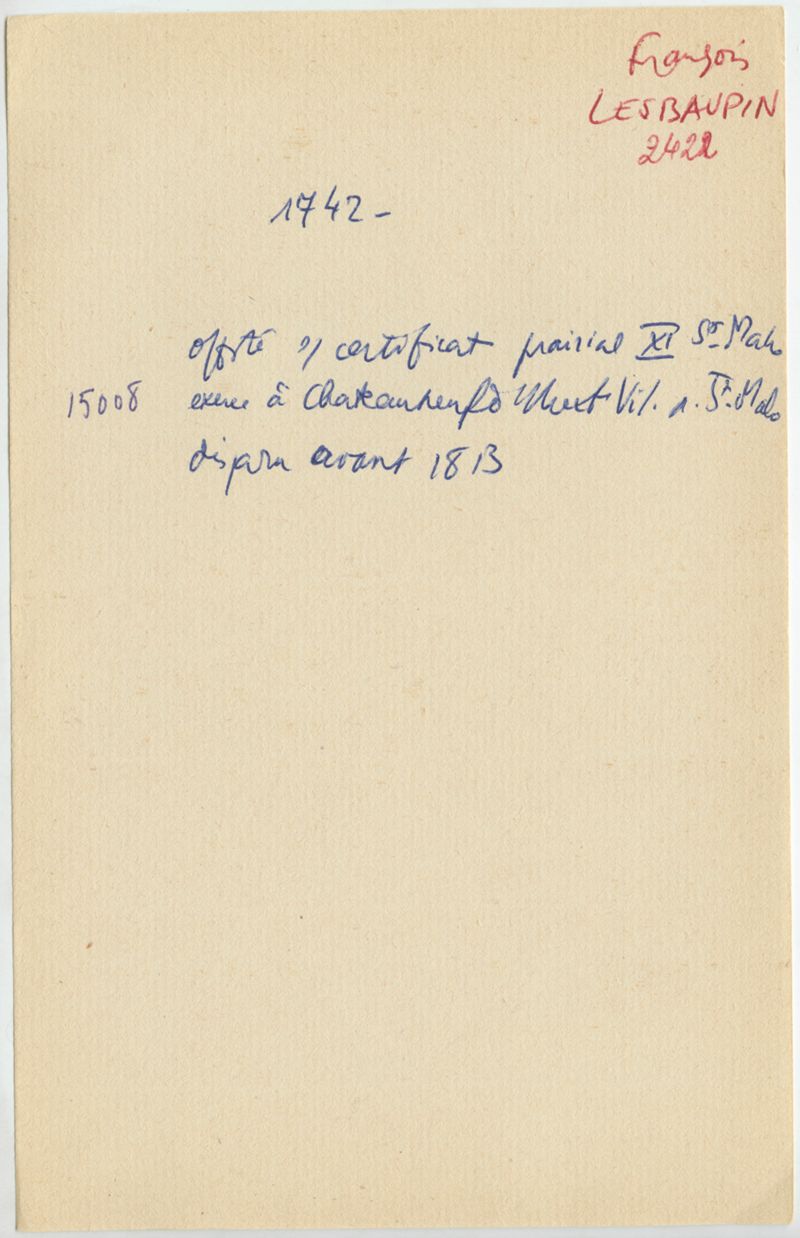 François
LESBAUPIN
2422
1742 -
certificat prairial XI St Malo
15008 exerce à Chateauneuf St Malo
disparu avant 1813